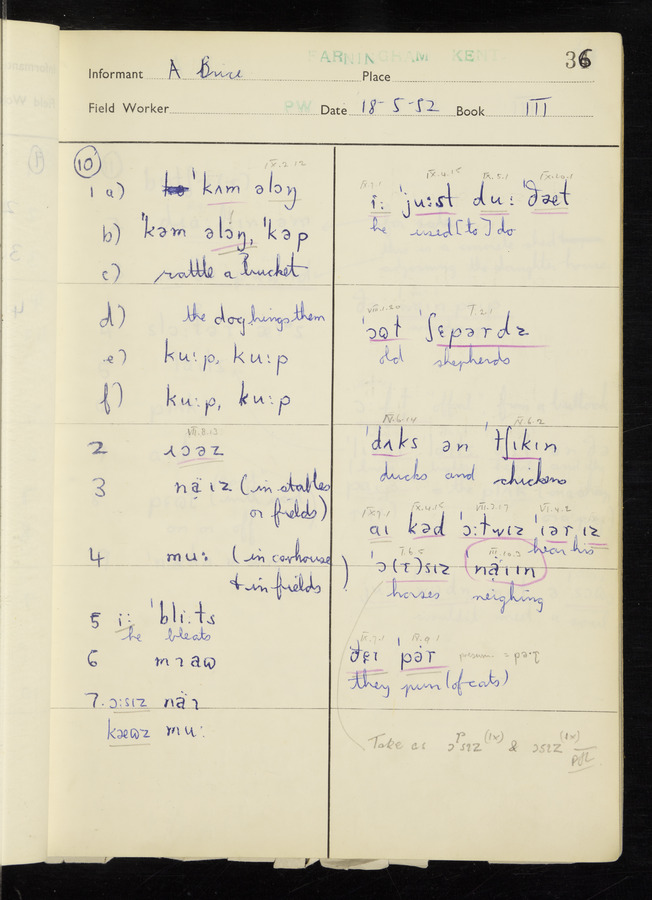 FARNINGHAM KENT
36
Informant A Brice Place
Field Worker PW Date 18-5-52 Book III
10
IX.2.12
1 a) ˈkʌm əlɔŋ
b) ˈkəm əlɔŋ, ˈkəp
c) rattle a bucket
d) the dog brings them
e) ku:p, ku:p
f) ku:p, ku:p
VII.8.13
2 ɹɔəz
3 næ̈ɪz (in stables
or fields)
4 mu: (in cowhouse
& in fields)
5 i: ˈbli.ts
he bleats
6 mɪaɷ
7. ɔ:sɪz næ̈ɪ
kæɷz mu:
i: ˈju:st du: ˈðæt
he used [to] do
VIII.1.20 I.2.1
ˈɔɷt ˈʃɛpərdz
old shepherds
IV.6.14 IV.6.2
ˈdʌks ən ˈtʃɪkɪn
ducks and chickens
IX.4.15 VII.3.17 VI.4.2
aɪ kəd ˈɔ:twɪz ˈɪər ɪz
hear his
I.6.5 III.10.3
ˈɔ(r)sɪz næ̈ɪɪn
horses neighing
ðɛɪ ˈpər
they purr (of cats)
Take as ɔʳsɪz (1x) & ɔsɪz (1x)